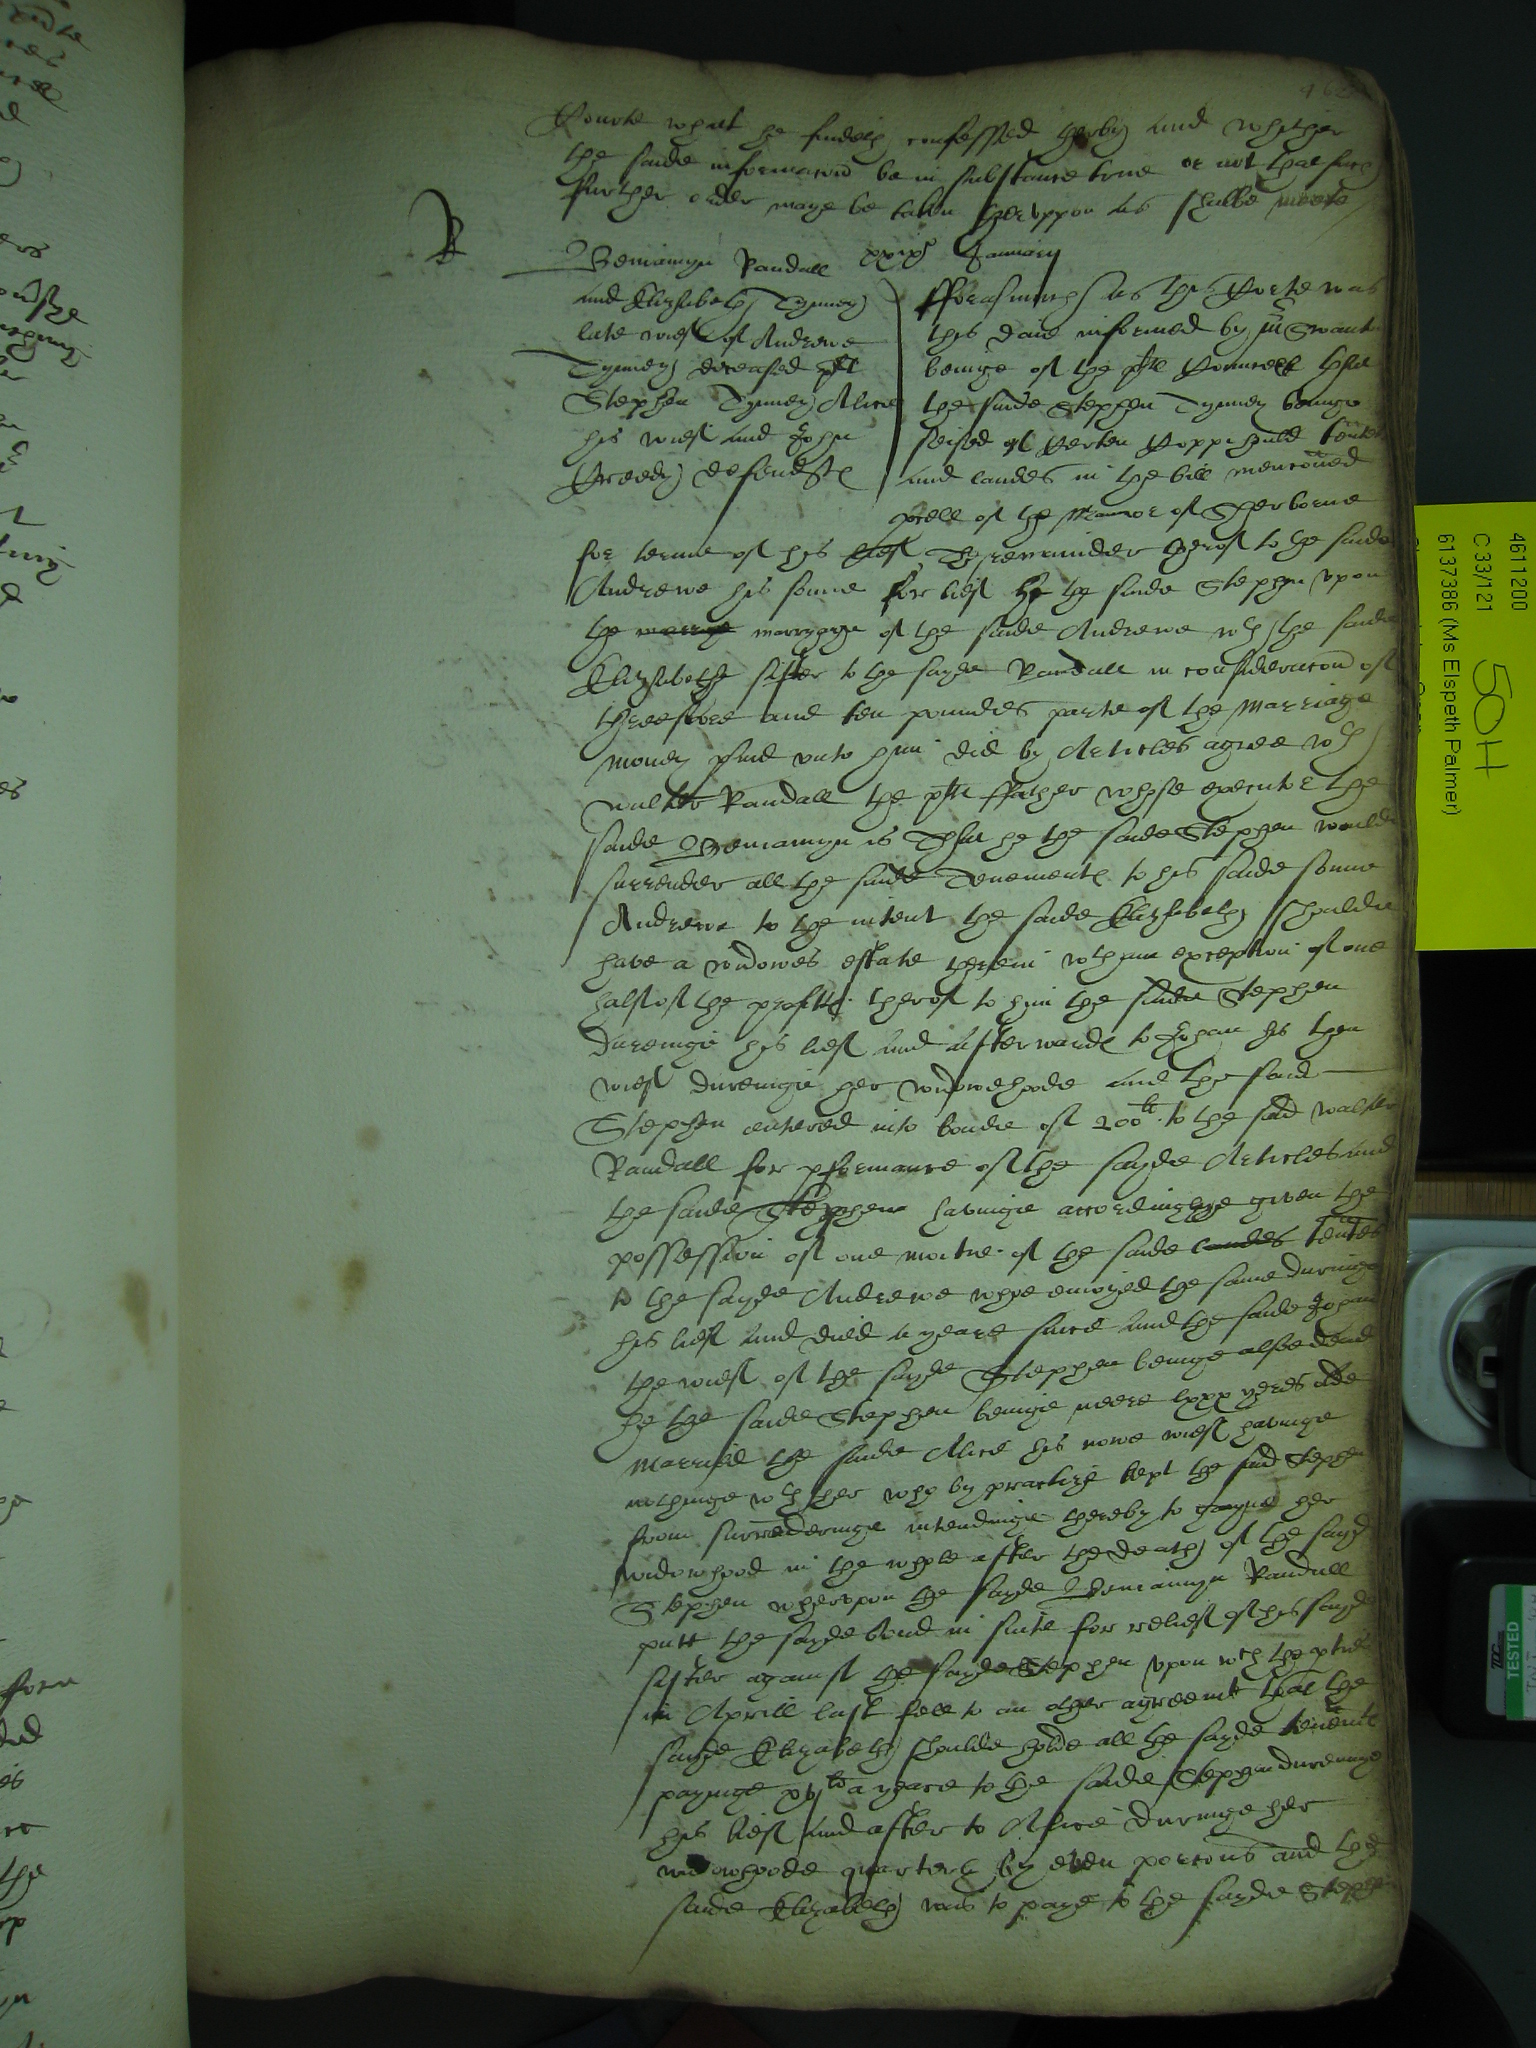 Courte what he findeth confessed therby and whether
the saide informacon be in substance true or not that such
further order maye be taken theruppon as shalbe meete
R
Beniamyn Randall xxixo January
and Elizabeth Tynney
late wief of Andrewe
Tynney deceased plt
Stephen Tynney Alice
his wief and John
Greedy defendtes
fforasmuch as this Courte was
this daie informed by mr Swanton
beinge of the plts Councell that
the saide Stephen Tynney beinge
seised of certen Coppiehould tents
and landes in the bill menconed
pcell of the Mannor of Sherborne
for terme of his lief The remainder therof to the saide
Andrewe his sonne for lief he the saide Stephen upon
the marriage marryage of the saide Andrewe wth the saide
Elizabeth sister to the sayde Randall in consideracon of
threescore and ten poundes parte of the Marriage
money paid unto him did by Articles agree wth
walter Randall the plts ffather whose executor the
saide Beniamyn is That he the saide Stephen woulde
surrender all the saide Tenementes to his saide sonne
Andrewe to the intent the saide Elizabeth shoulde
have a widowes estate therein wth an exception of one
half of the profittes therof to him the saide Stephen
Duringe his lief and afterwardes to Johan his then
wief duringe her widowehoode and the said
Stephen entered into bonde of 200li to the said walter
Randall for pformance of the sayde Articles and
the saide Stephen havinge accordinglye given the
possession of one moitie of the saide landes tents
to the sayde Andrewe whoe enioyed the same duringe
his lief and died a yeare since and the saide Johan
the wief of the sayde Stephen beinge also dead
he the saide Stephen beinge neere lxxx yeres olde
Married the saide Alice his nowe wief havinge
nothinge wth her who by practize kept the said Stephen
from surrenderinge intendinge thereby to gayne her
widowhood in the whole after the death of the sayd
Stephen wherupon the sayde Beniamyn Randall
putt the sayde bond in suite for relief of his sayde
sister against the sayde Stephen upon wch the pties
in Aprill last fell to an other agreemt that the
sayde Elizabeth shoulde holde all the sayde tenemts
payinge xvjli a yeare to the saide Stephen duringe
his lief and after to Alice duringe her
widowhoode quarterly by even porcons and the
saide Elizabeth was to paye to the sayde Stephen
4611200
C 33/121
50H
6137386 (Ms Elspeth Palmer)
TESTED